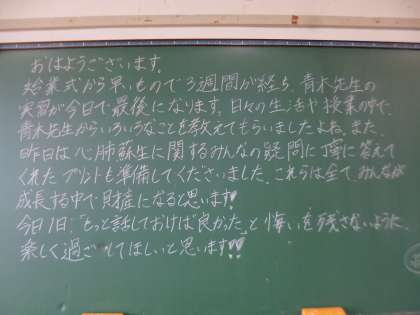 おはようございます。
始業式から早いもので3週間が経ち、青木先生の
実習が今日で最後になります。日々の生活や授業の中で、
青木先生からいろいろなことを教えてもらいましたよね。また、
昨日は心肺蘇生に関するみんなの疑問に丁寧に答えて
くれたプリントも準備してくださいました。これらは全てみんなが
成長する中で財産になると思います!!
今日1日:「もっと話しておけば良かった」と悔いを残さないように、
楽しく過ごしてほしいと思います!!